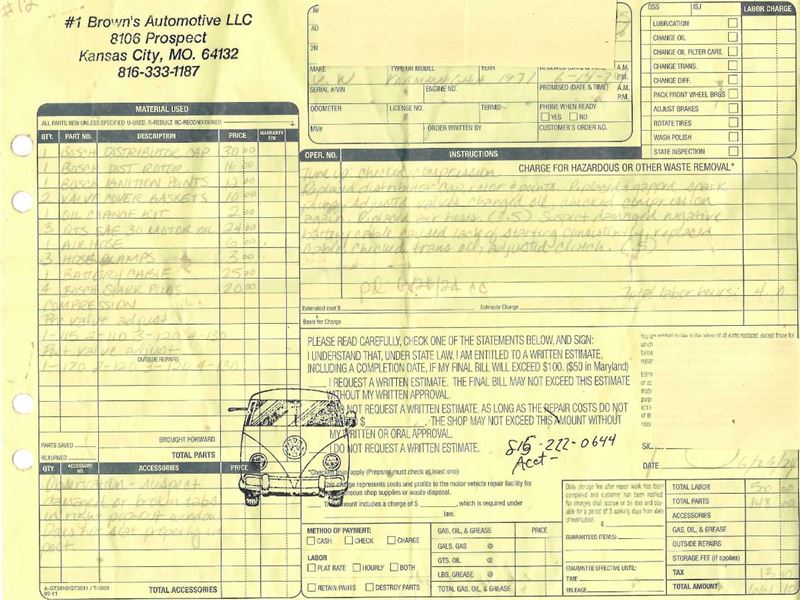 #12
#1 Brown's Automotive LLC
8106 Prospect
Kansas City, MO. 64132
816-333-1187
MATERIAL USED
ALL PARTS NEW UNLESS SPECIFIED U-USED, R-REBUILT RC-RECONDITIONED
QTY. PART NO. DESCRIPTION PRICE WARRANTY Y/N
1 BOSCH DISTRIBUTOR CAP 30 00
1 BOSCH DIST ROTOR 16 00
1 BOSCH IGNITION POINTS 12 00
2 VALVE COVER GASKETS 10 00
1 OIL CHANGE KIT 2 00
3 QTS SAE 30 MOTOR OIL 24 00
1 AIR HOSE 6 00
3 HOSE CLAMPS 3 00
1 BATTERY CABLE 25 00
4 BOSCH SPARK PLUGS 20 00
COMPRESSION
Pre valve adjust
1-115 2-110 3-120 4-130
Post valve adjust
OUTSIDE REPAIRS
1-120 2-120 3-120 4-130
PARTS SAVED
BROUGHT FORWARD
TOTAL PARTS
QTY ACCESSORY NO. ACCESSORIES PRICE
Observation - suspect
damaged or broken tabs
in right pop-out window
Does not seat properly in
A-GT3810/GT3811 / T-3809
TOTAL ACCESSORIES
MAKE TYPE OR MODEL YEAR RECEIVED (DATE & TIME) A.M. P.M.
V.W Karmann Ghia 1971
SERIAL #/VIN ENGINE NO. PROMISED (DATE & TIME) A.M. P.M.
ODOMETER LICENSE NO. TERMS: PHONE WHEN READY
YES NO
MV# ORDER WRITTEN BY CUSTOMER'S ORDER NO.
DSS ISJ LABOR CHARGE
LUBRICATION
CHANGE OIL
CHANGE OIL FILTER CART.
CHANGE TRANS.
CHANGE DIFF.
PACK FRONT WHEEL BRGS
ADJUST BRAKES
ROTATE TIRES
WASH POLISH
STATE INSPECTION
OPER. NO. INSTRUCTIONS
CHARGE FOR HAZARDOUS OR OTHER WASTE REMOVAL*
Tune up checked compression.
Replaced distributor cap, rotor & points. Replaced & gapped spark
plugs. Adjusted valves. Changed oil, checked compression
again. Replaced air hoses. (3.5) Suspect damaged negative
battery cable caused lack of starting consistently, replaced
cable. Checked trans oil, adjusted clutch. (.5)
pd 6/26/24 cc
Total labor hours: 4.0
Estimated cost $ Estimate Charge
Basis for Charge
PLEASE READ CAREFULLY, CHECK ONE OF THE STATEMENTS BELOW, AND SIGN:
I UNDERSTAND THAT, UNDER STATE LAW, I AM ENTITLED TO A WRITTEN ESTIMATE,
INCLUDING A COMPLETION DATE, IF MY FINAL BILL WILL EXCEED $100. ($50 in Maryland)
I REQUEST A WRITTEN ESTIMATE. THE FINAL BILL MAY NOT EXCEED THIS ESTIMATE
WITHOUT MY WRITTEN APPROVAL.
NOT REQUEST A WRITTEN ESTIMATE, AS LONG AS THE REPAIR COSTS DO NOT
$ . THE SHOP MAY NOT EXCEED THIS AMOUNT WITHOUT
MY WRITTEN OR ORAL APPROVAL.
DO NOT REQUEST A WRITTEN ESTIMATE.
815-222-0644
Acct-
apply (Preparer must check at least one):
charge represents costs and profits to the motor vehicle repair facility for
shop supplies or waste disposal.
amount includes a charge of $ , which is required under
law:
DATE 6/26/24
METHOD OF PAYMENT:
CASH CHECK CHARGE
LABOR
FLAT RATE HOURLY BOTH
RETAIN PARTS DESTROY PARTS
GAS, OIL, & GREASE PRICE
GALS. GAS @
QTS. OIL @
LBS. GREASE @
TOTAL GAS, OIL, & GREASE
Daily storage fee after repair work has been
completed and customer has been notified
GUARANTEED ITEMS:
GUARANTEE EFFECTIVE UNTIL:
TIME
MILEAGE
TOTAL LABOR 500 00
TOTAL PARTS 148 00
ACCESSORIES
GAS, OIL, & GREASE
OUTSIDE REPAIRS
STORAGE FEE (if applies)
TAX
TOTAL AMOUNT